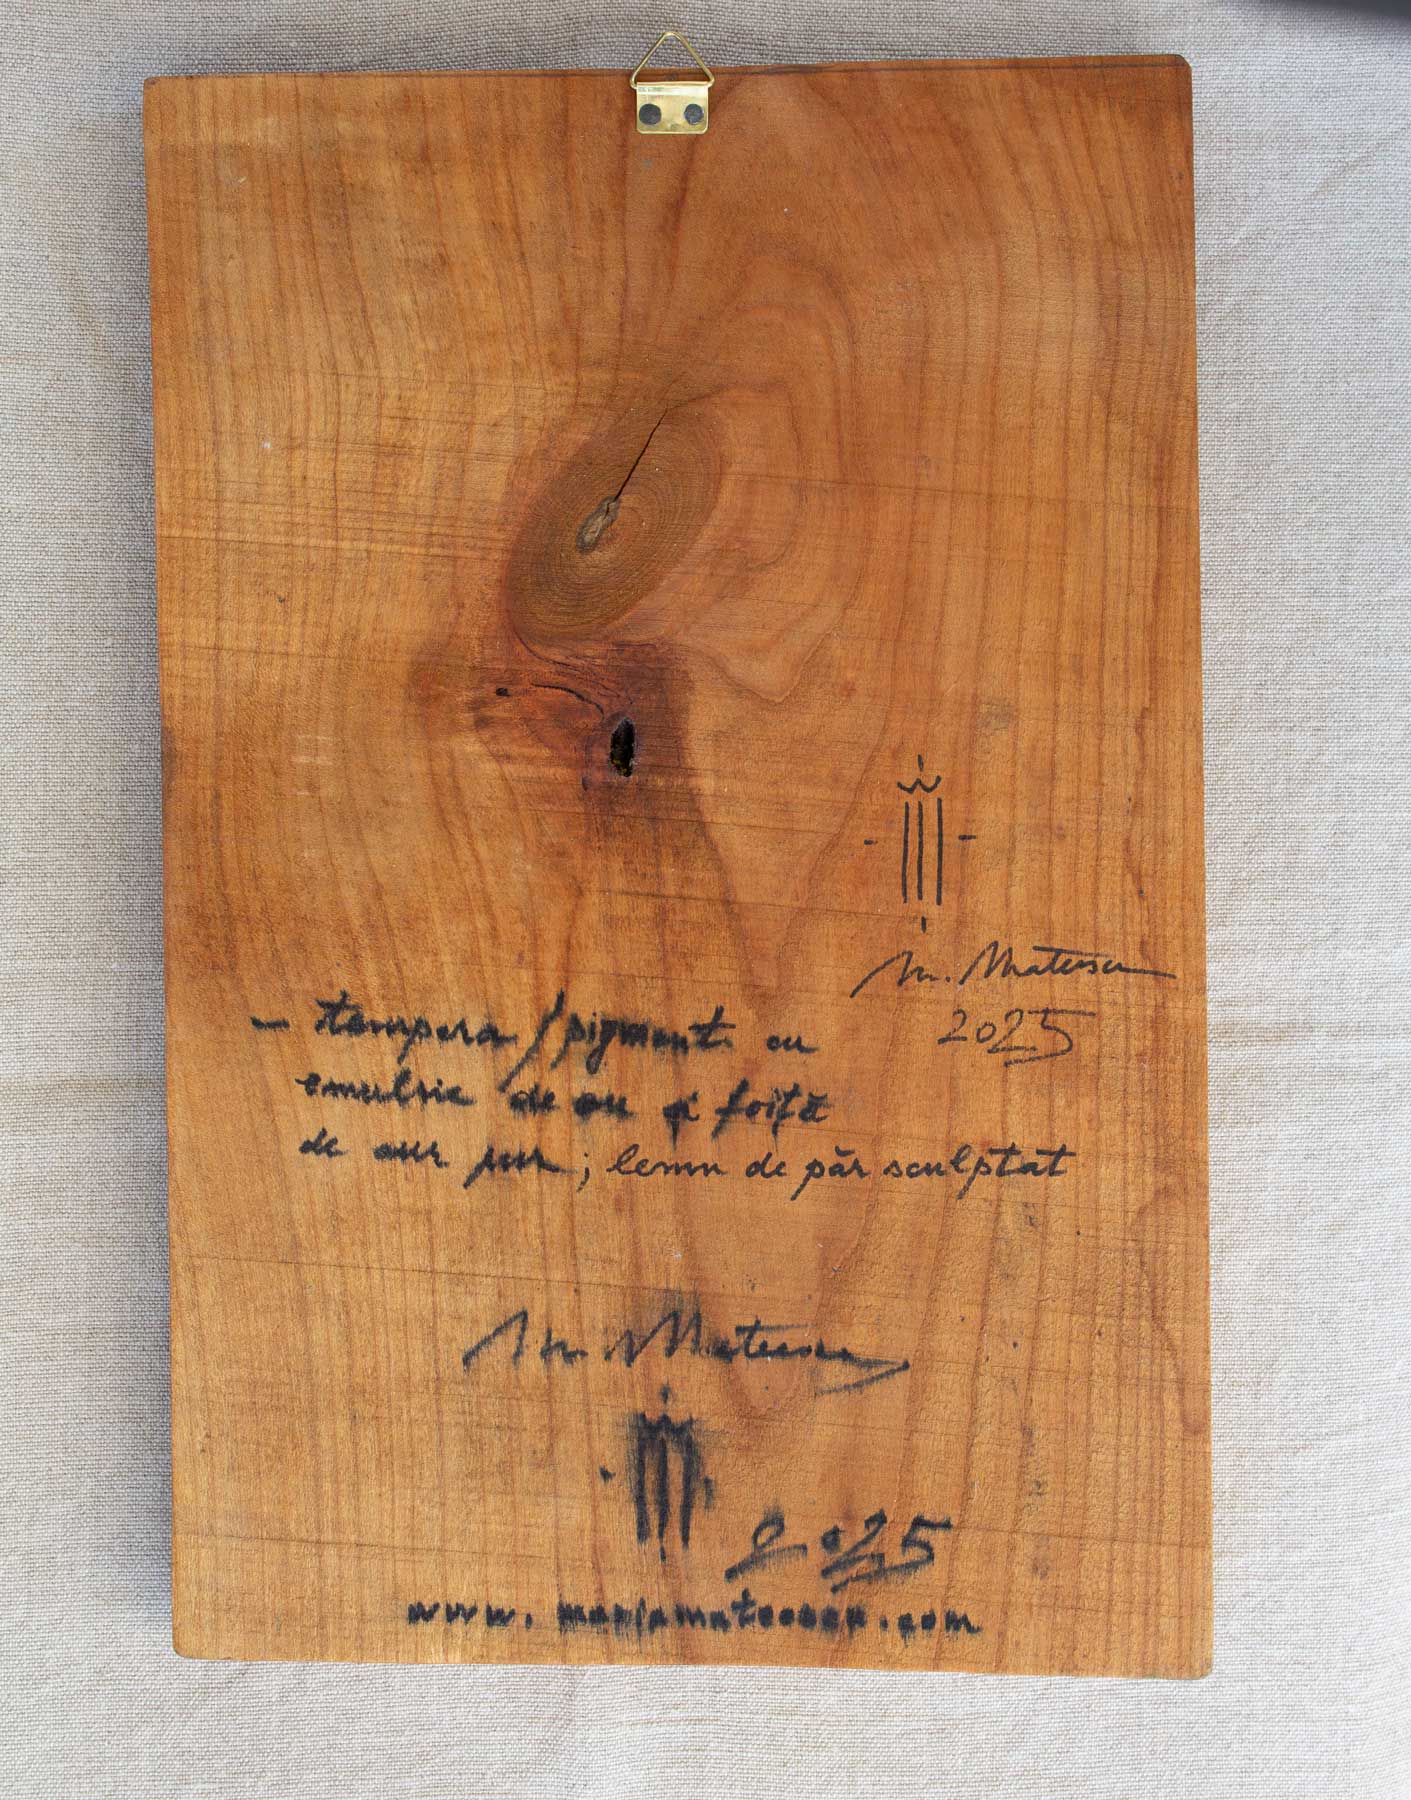 M. Mateescu
2025
– tempera / pigment cu
emulsie de ou și foiță
de aur pur; lemn de păr sculptat
M. Mateescu
2025
www.mariamateescu.com